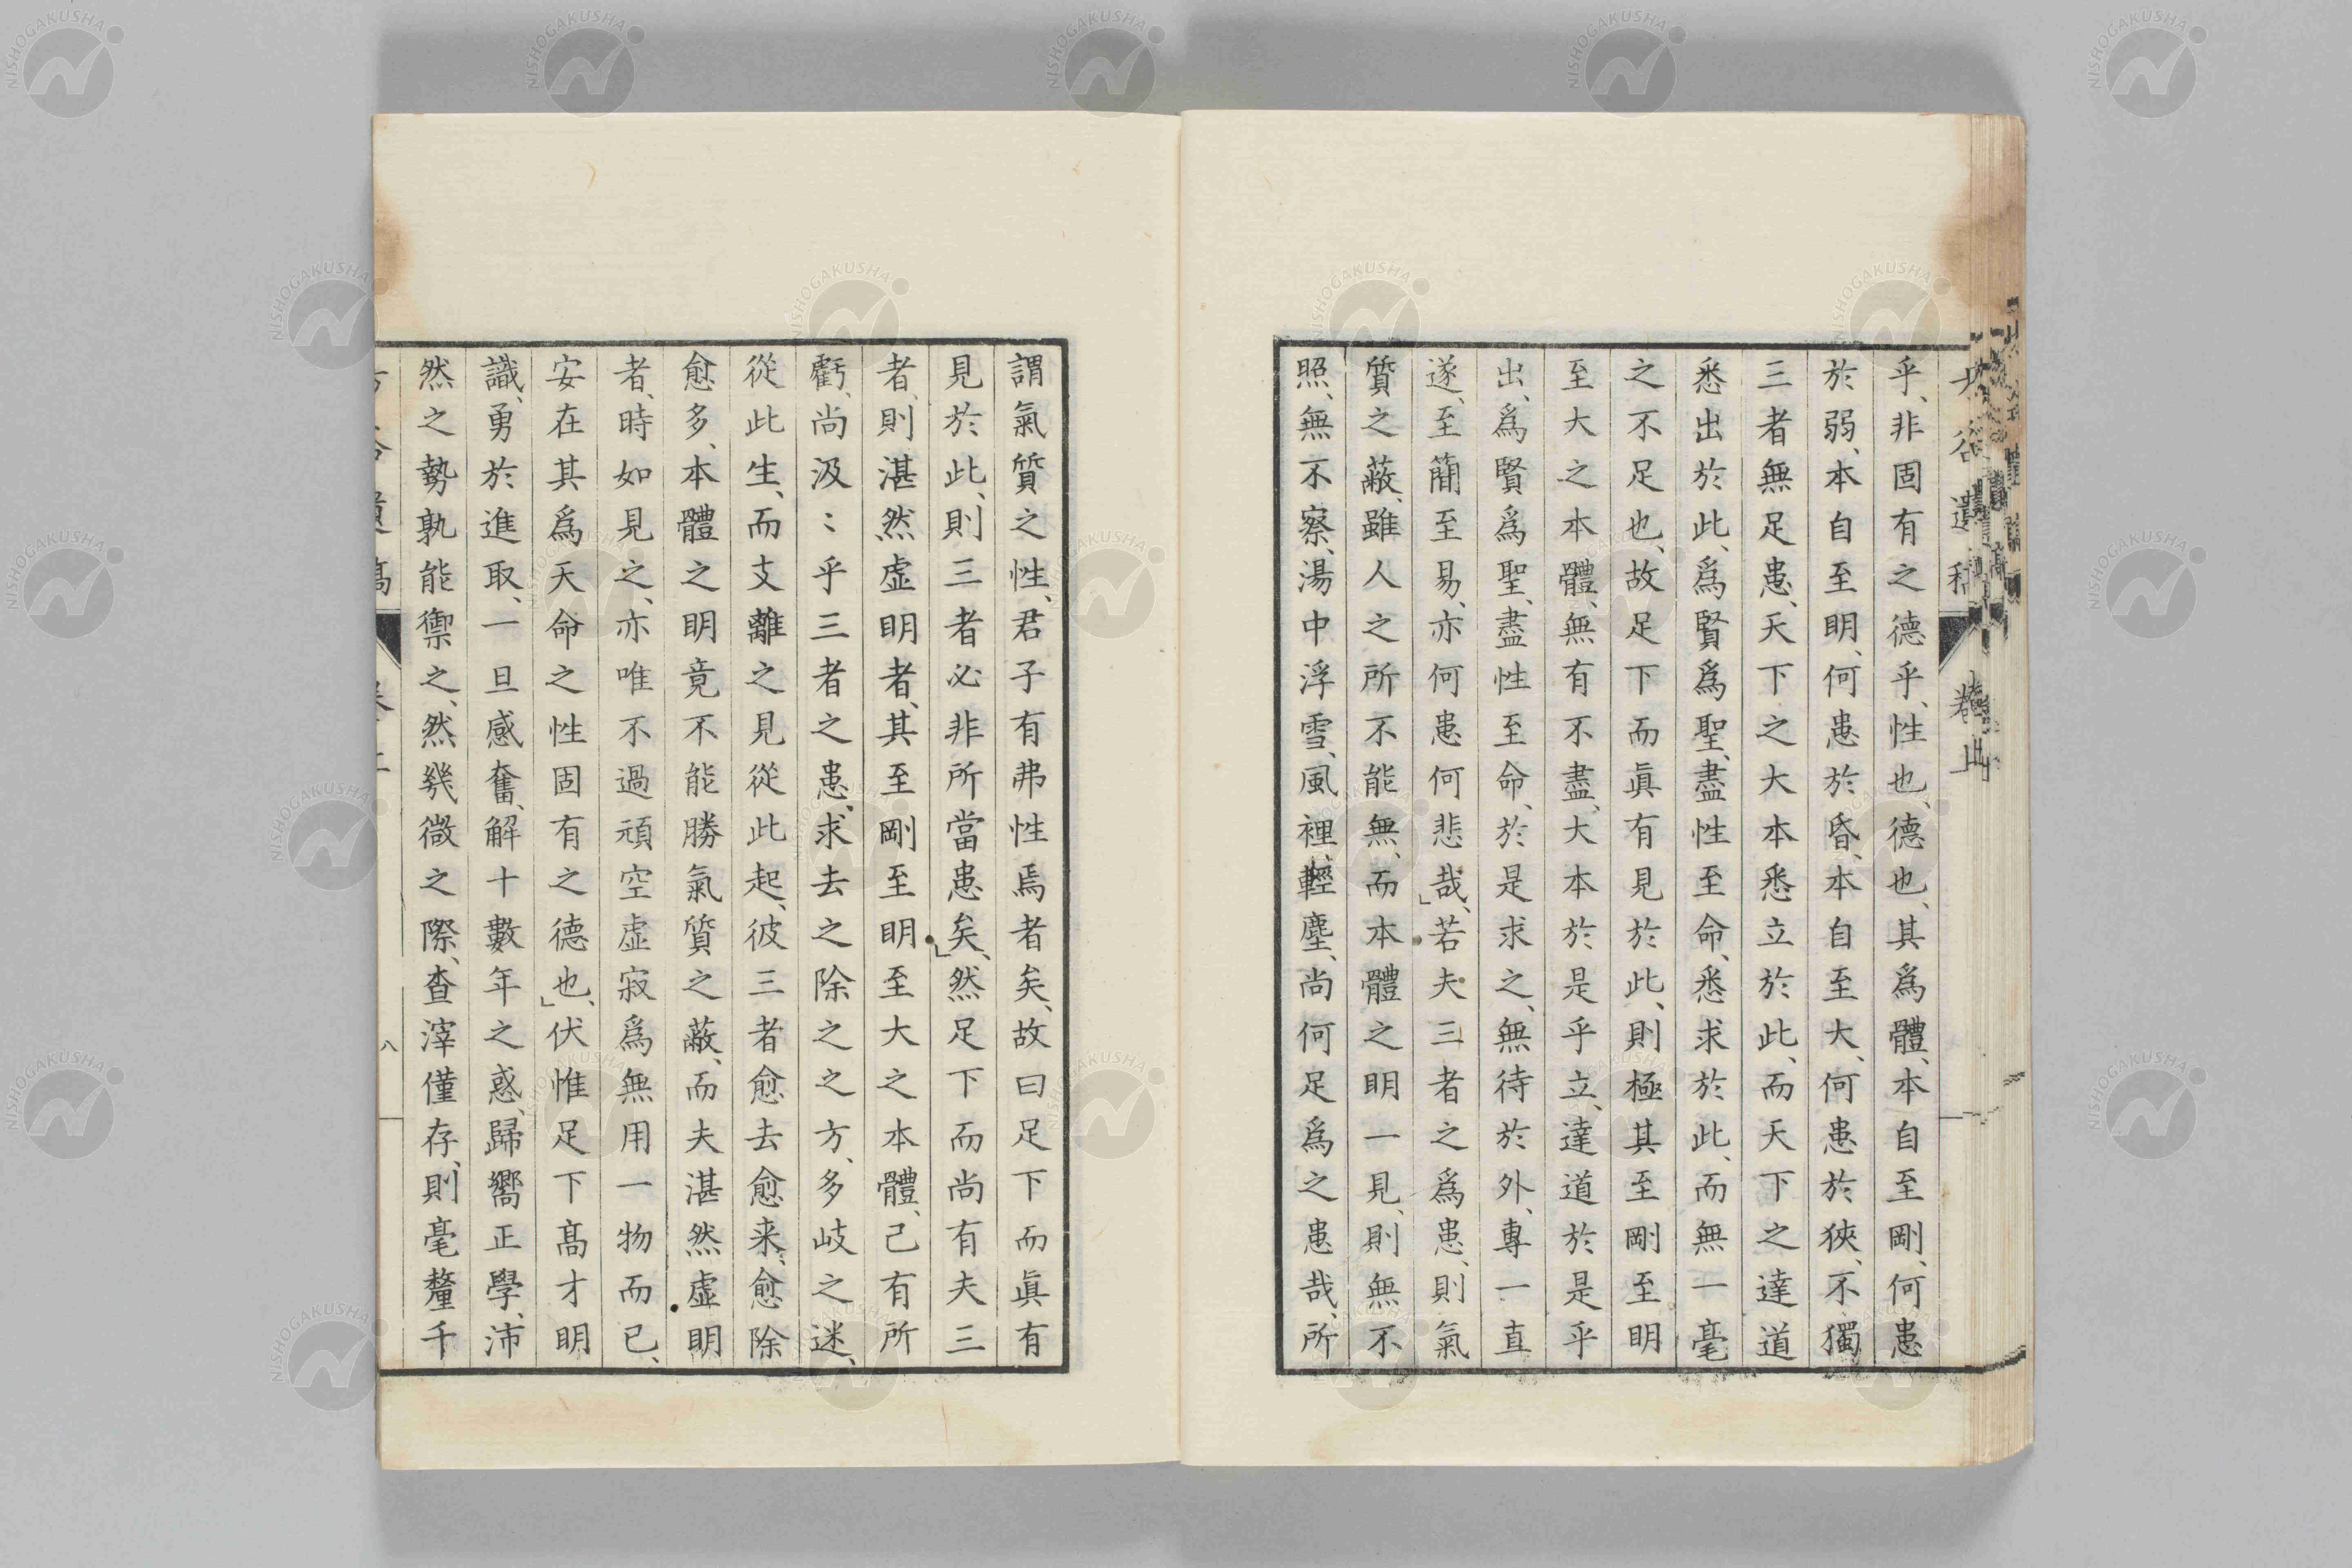 乎、非固有之德乎、性也、德也、其爲體、本自至剛、何患
於弱、本自至明、何患於昏、本自至大、何患於狹、不獨
三者無足患、天下之大本悉立於此、而天下之達道
悉出於此、爲賢爲聖、盡性至命、悉求於此、而無一毫
之不足也、故足下而眞有見於此、則極其至剛至明
至大之本體、無有不盡、大本於是乎立、達道於是乎
出、爲賢爲聖、盡性至命、於是求之、無待於外、專一直
遂、至簡至易、亦何患何悲哉、」若夫三者之爲患、則氣
質之蔽、雖人之所不能無、而本體之明一見、則無不
照、無不察、湯中浮雪、風裡輕塵、尚何足爲之患哉、所
謂氣質之性、君子有弗性焉者矣、故曰足下而眞有
見於此、則三者必非所當患矣、」然足下而尚有夫三
者、則湛然虛明者、其至剛至明至大之本體、己有所
虧、尚汲〻乎三者之患、求去之除之之方、多岐之迷、
從此生、而支離之見從此起、彼三者愈去愈来、愈除
愈多、本體之明竟不能勝氣質之蔽、而夫湛然虛明
者、時如見之、亦唯不過頑空虛寂爲無用一物而已、
安在其爲天命之性固有之德也、」伏惟足下髙才明
識、勇於進取、一旦感奮、解十數年之惑、歸嚮正學、沛
然之勢孰能禦之、然幾微之際、查滓僅存、則毫釐千
八